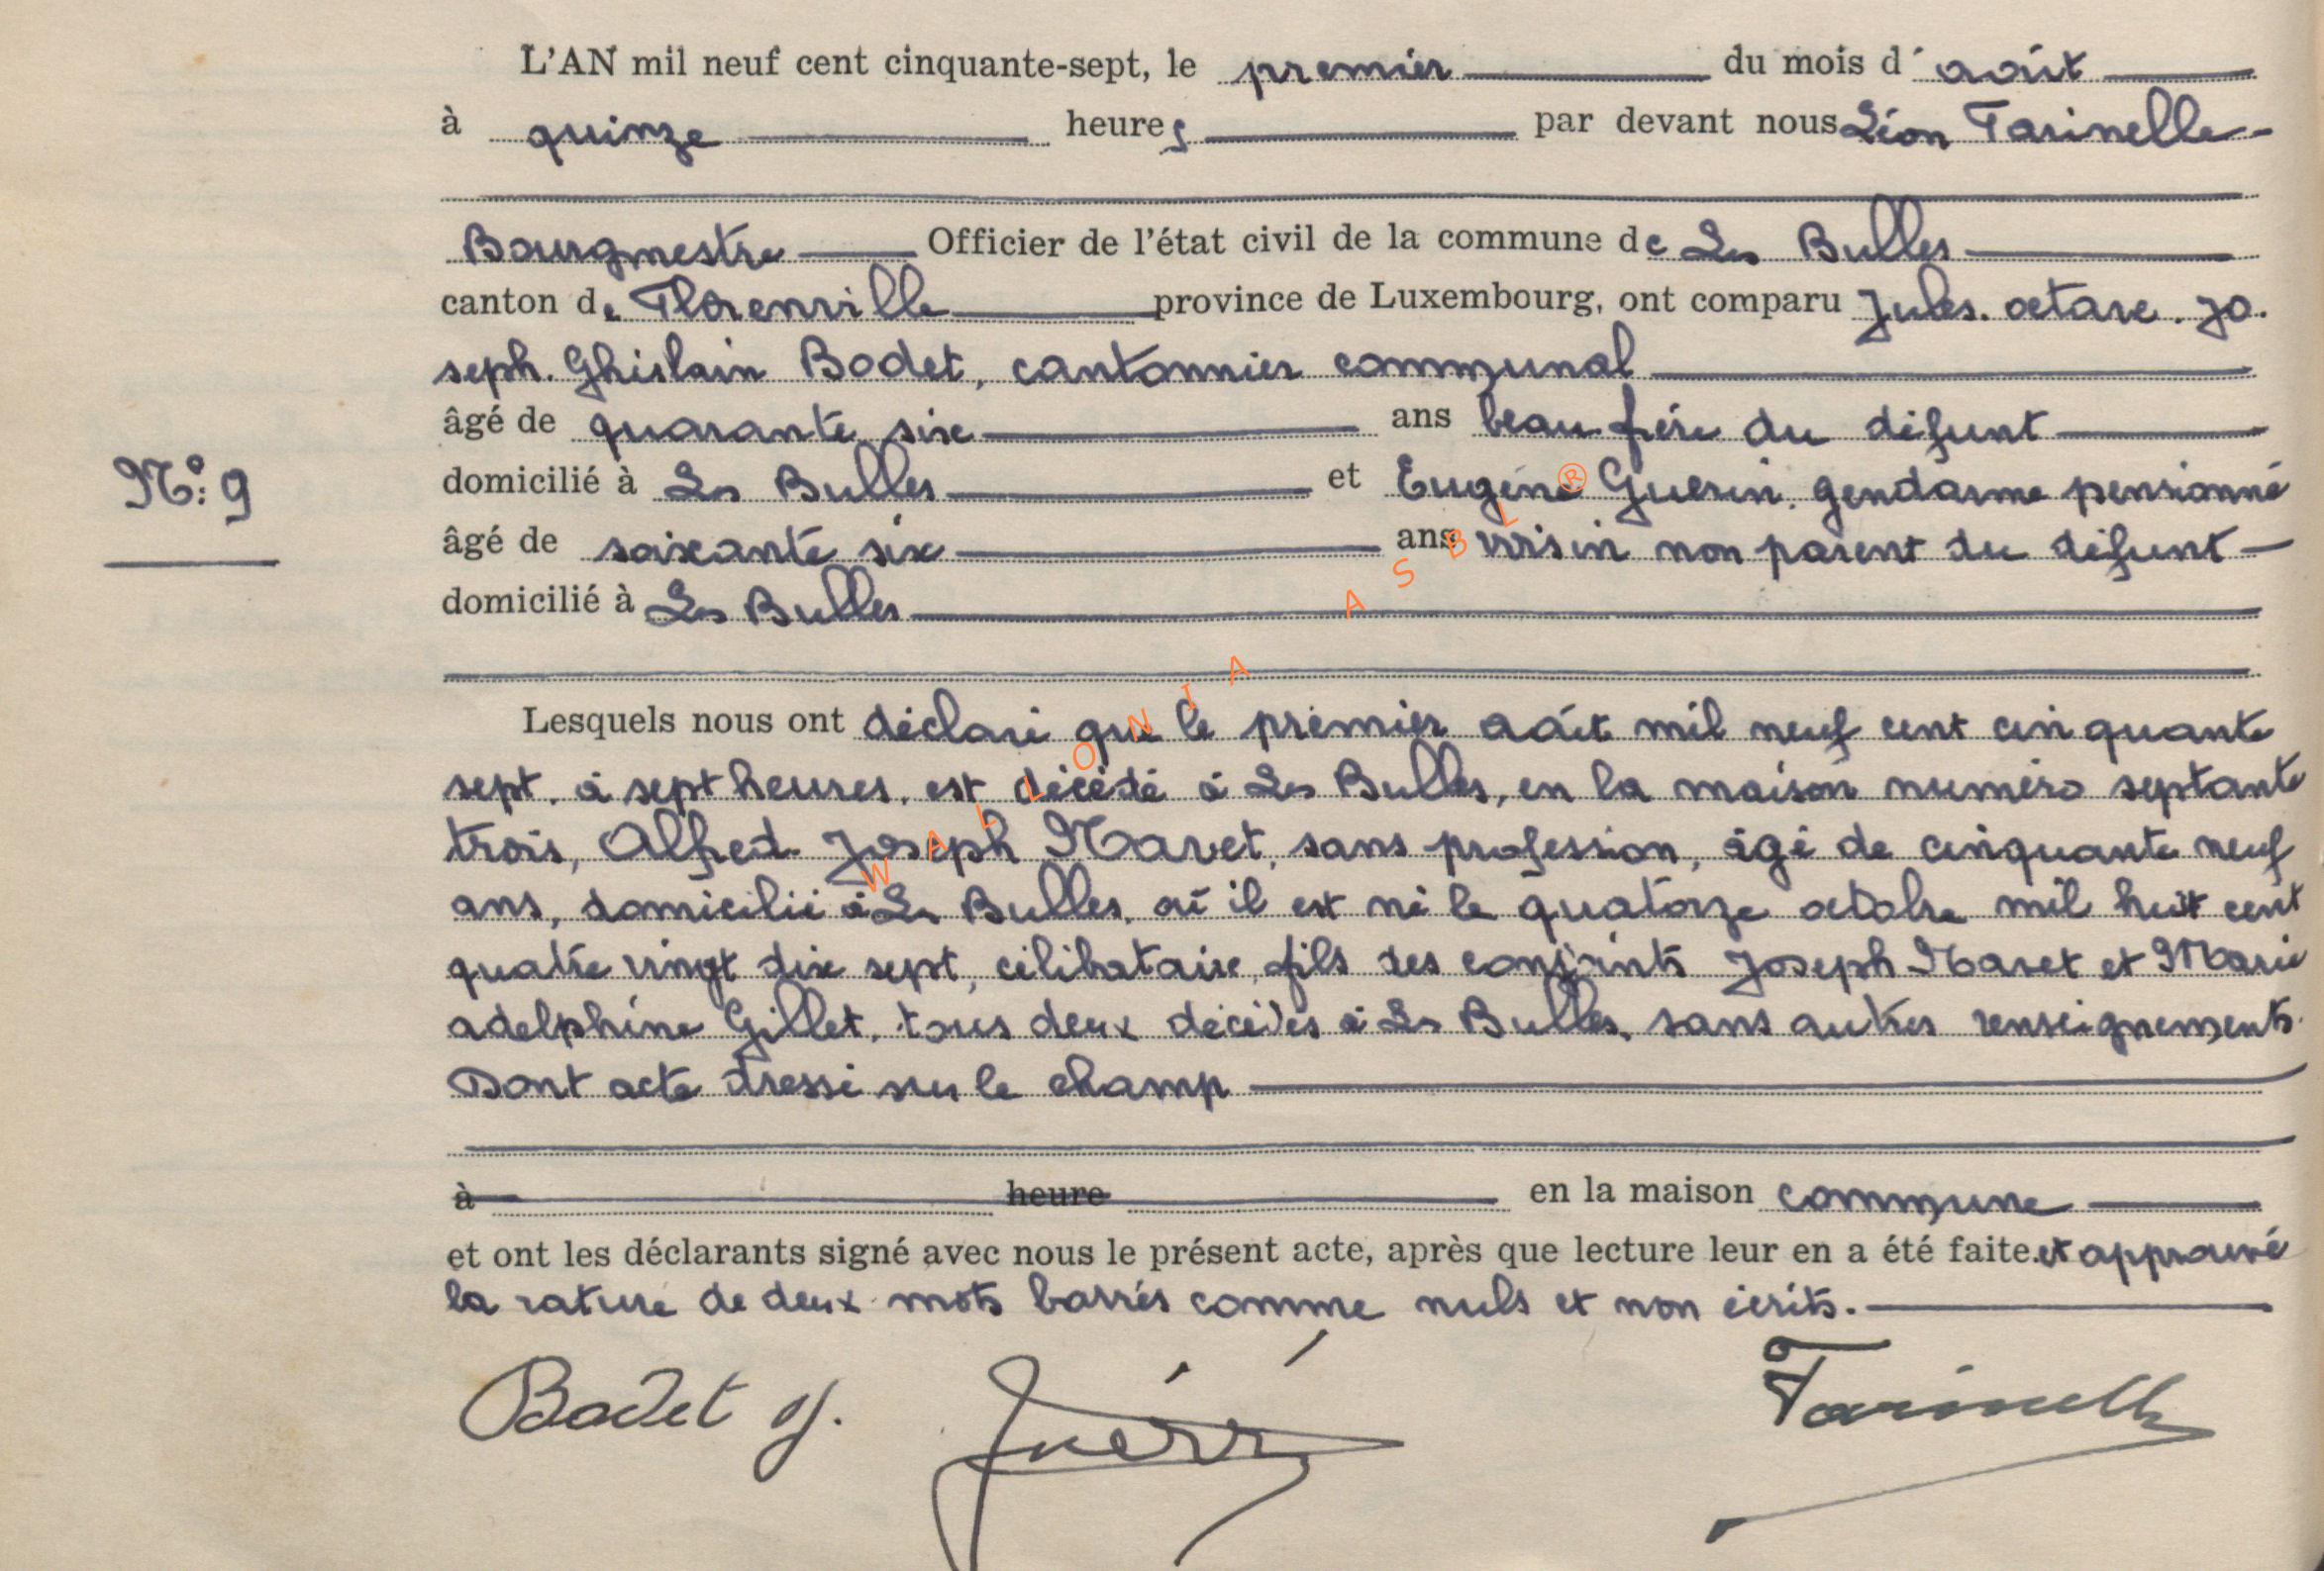 L'AN mil neuf cent cinquante-sept, le premier du mois d'août
à quinze heures par devant nous Léon Tarinelle
Bourgmestre Officier de l'état civil de la commune de Les Bulles
canton de Florenville province de Luxembourg, ont comparu Jules. octave. Jo.
seph. Ghislain Bodet, cantonnier communal
âgé de quarante six ans beau frère du défunt
N°: 9
domicilié à Les Bulles et Eugène Guerin. gendarme pensionné
âgé de soixante six ans voisin non parent du défunt
domicilié à Les Bulles
Lesquels nous ont déclaré que le premier août mil neuf cent cinquante
sept. à sept heures. est décédé à Les Bulles, en la maison numéro septante
trois, Alfred. Joseph Navet, sans profession, âgé de cinquante neuf
ans, domicilié à Les Bulles, où il est né le quatorze octobre mil huit cent
quatre vingt dix sept, célibataire, fils des conjoints Joseph Navet et Marie
adelphine Gillet, tous deux décédés à Les Bulles, sans autres renseignements.
Dont acte dressé sur le champ
à heure en la maison commune
et ont les déclarants signé avec nous le présent acte, après que lecture leur en a été faite. et approuvé
la rature de deux mots barrés comme nuls et non écrits.
Bodet J. Guérin Tarinelle
WALLONIA ASBL ®